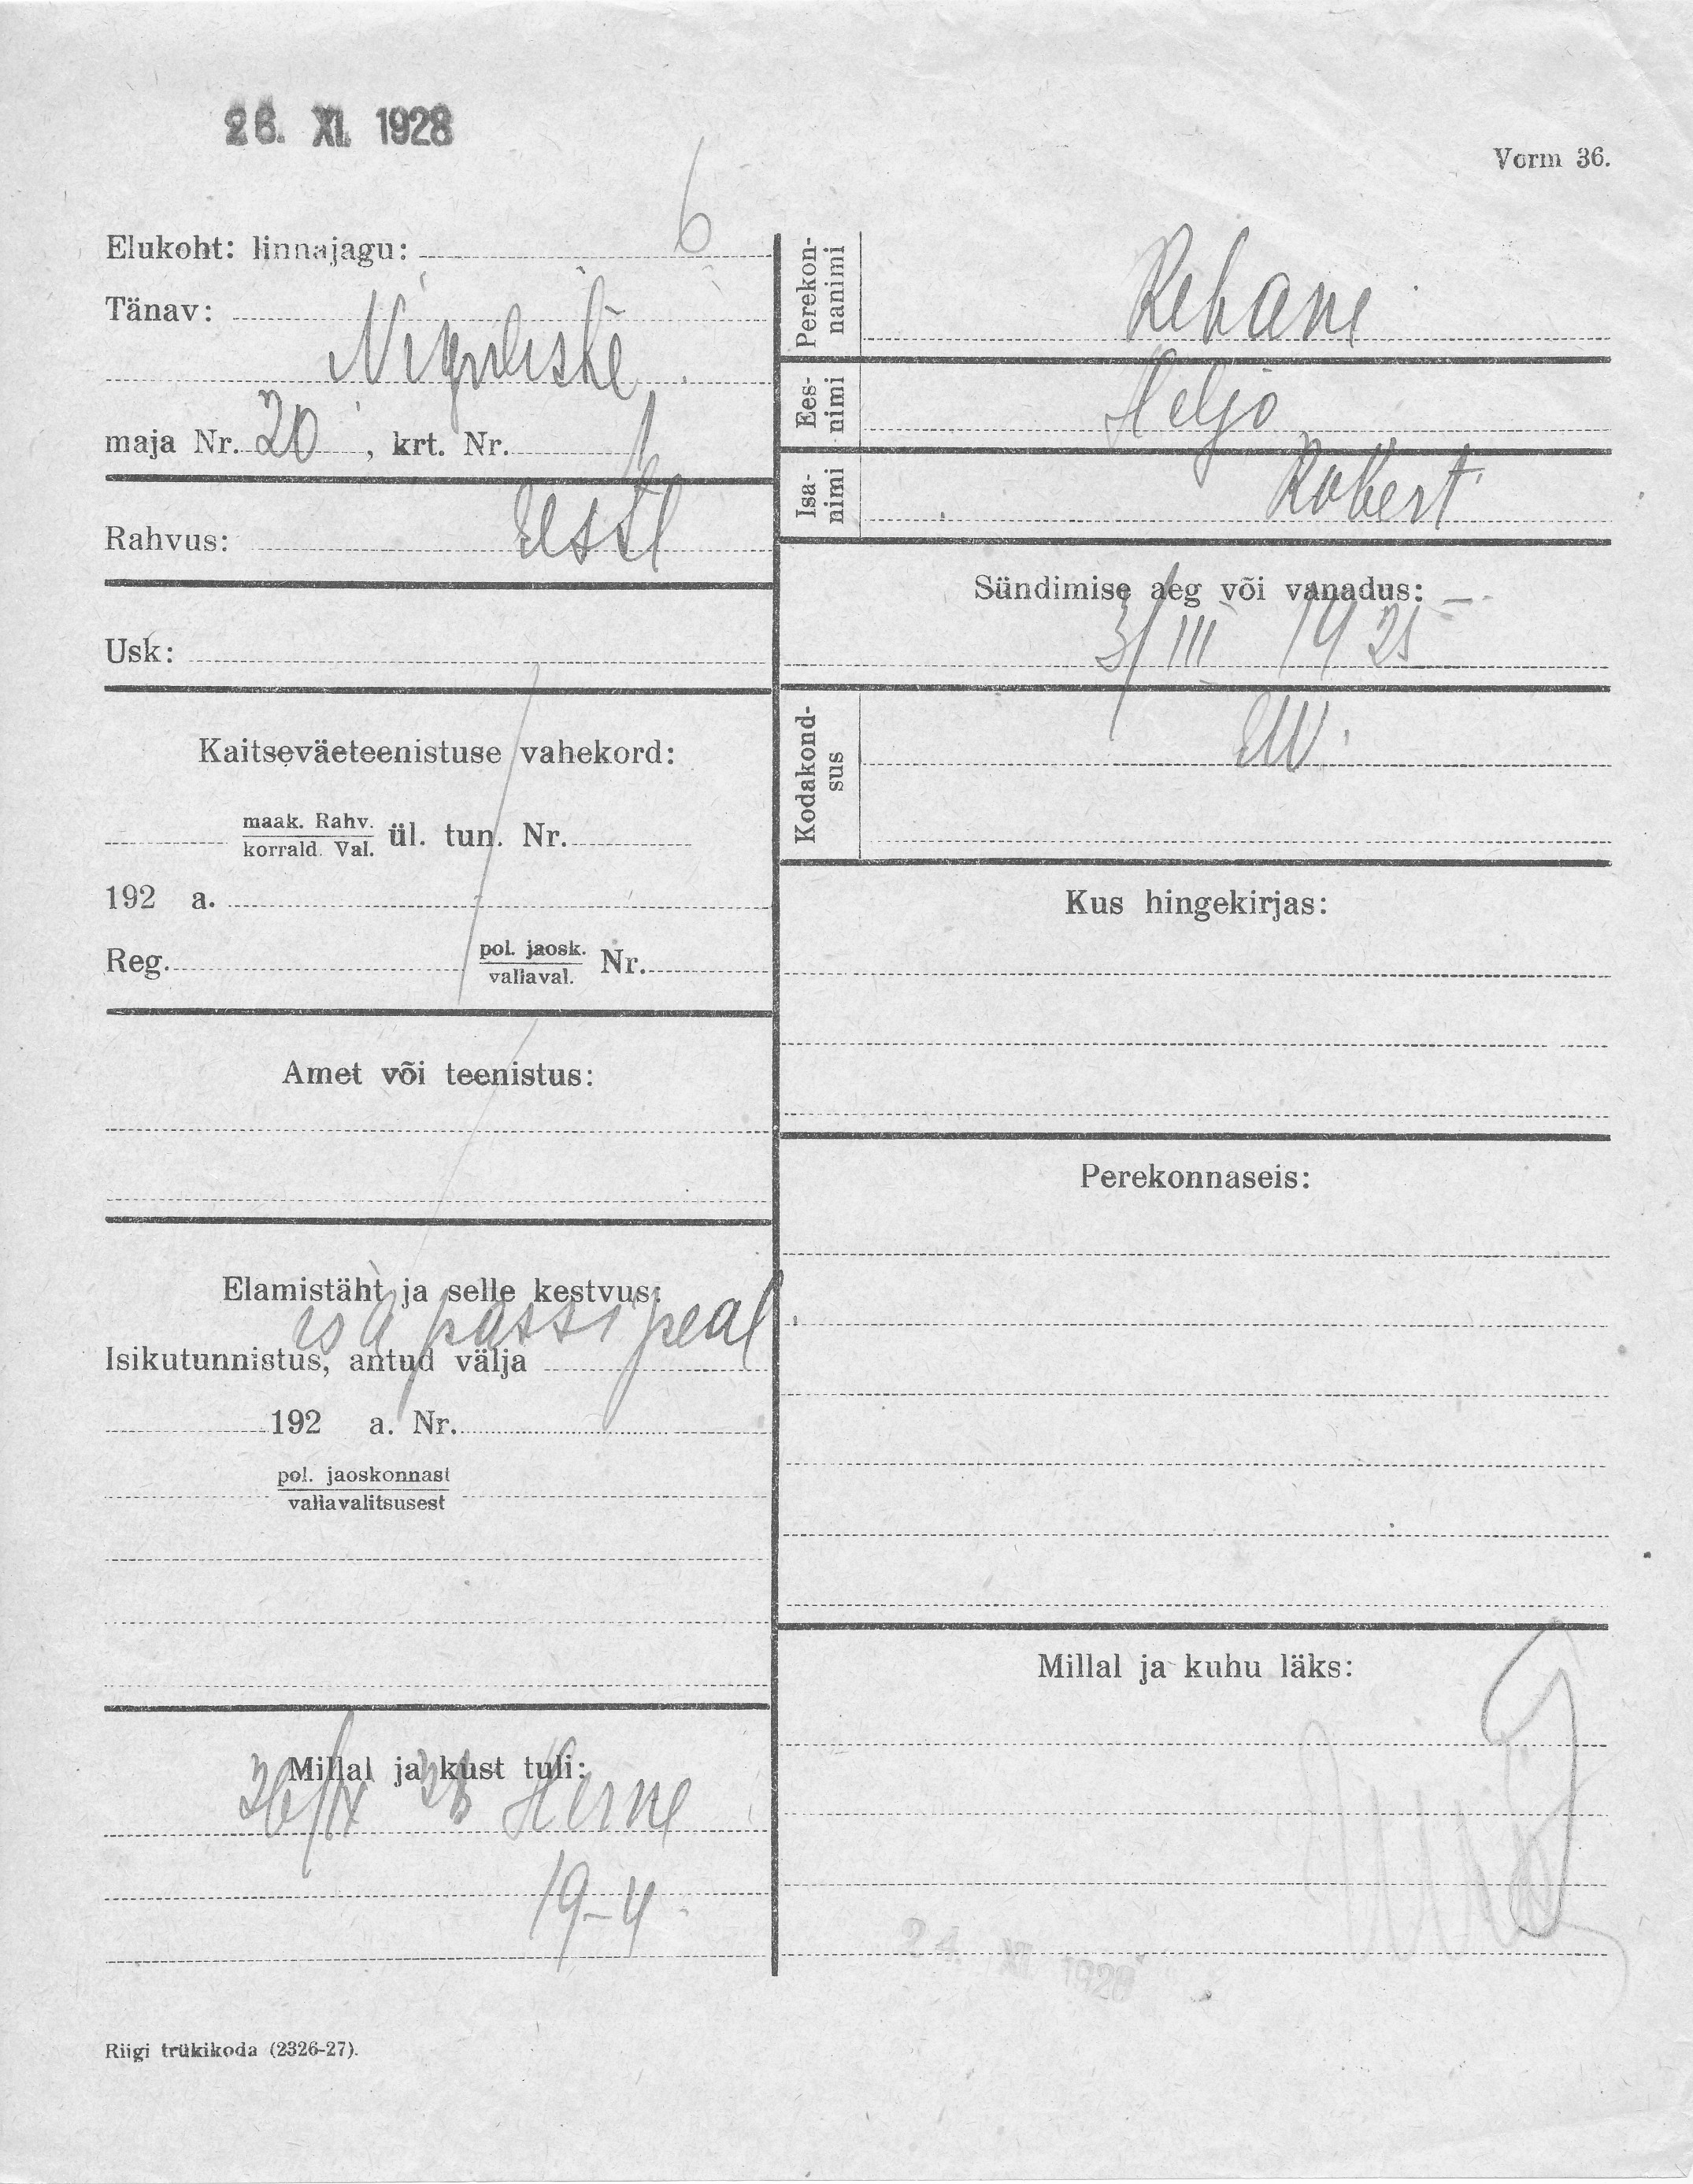 26. XI. 1928
Vorm 36.
Elukoht: linnajagu: 6
Tänav:
Niguliste
maja Nr. 20, krt. Nr. 1
Rahvus: eesti
Usk:
Kaitseväeteenistuse vahekord:
maak. Rahv.
korrald. Val. ül. tun. Nr.
192 a.
Reg. pol. jaosk. Nr.
vallaval.
Amet või teenistus:
Elamistäht ja selle kestvus:
isa passi peal
Isikutunnistus, antud välja
192 a. Nr.
pol. jaoskonnast
vallavalitsusest
Millal ja kust tuli:
26/IX 28 Herne
19-4
Perekon-
nanimi Rebane
Ees-
nimi Heljo
Isa-
nimi Robert
Sündimise aeg või vanadus:
3/III 1925
Kodakond-
sus EW.
Kus hingekirjas:
Perekonnaseis:
Millal ja kuhu läks:
24. XI 1928
Riigi trükikoda (2326-27).